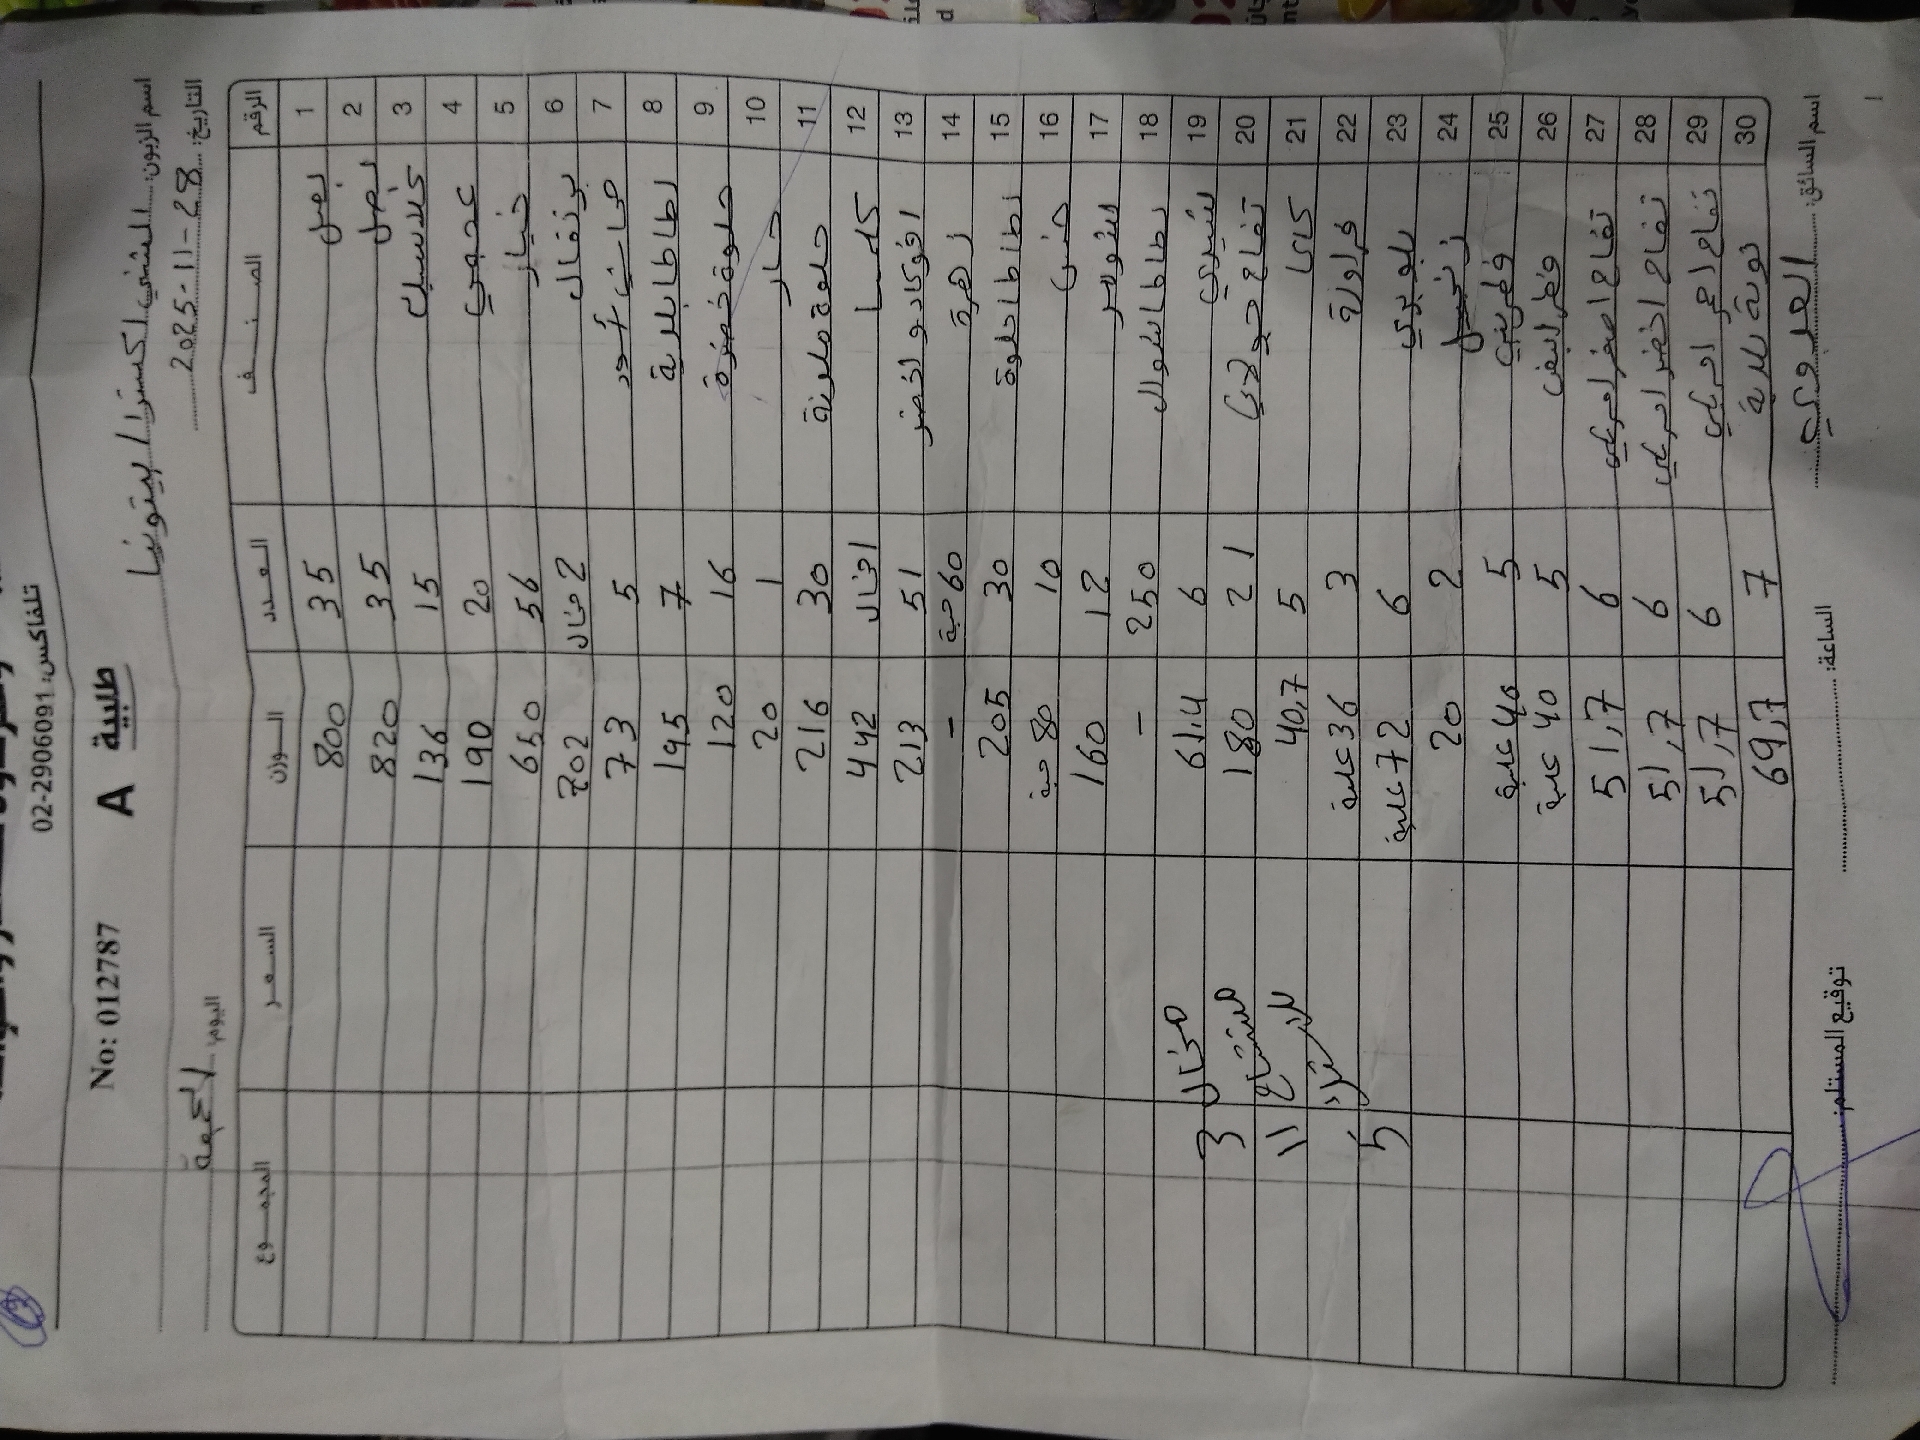 تلفاكس: 02-2906091
No: 012787 A طلبية
اسم الزبون: الشني اكسترا / بيتونيا
التاريخ: 28-11-2025 اليوم: الجمعة
الرقم الصنف العدد الوزن السعر المجموع
1 بصل 35 800
2 بصل 35 820
3 15 136
4 عجمي 20 190
5 خيار 56 650
6 برتقال 2 مشتال 702
7 5 73
8 بطاطا بلدية 7 195
9 حلوة خضرة 16 120
10 حار 1 20
11 حلوة ملونة 30 216
12 442
13 افوكادو اخضر 51 213
14 زهرة 60 حبة -
15 بطاطا حلوة 30 205
16 خس 10 80 حبة
17 12 160
18 بطاطا شوال 250 -
19 6 61,4
20 تفاح 21 180
21 كاكا 5 40,7
22 فراولة 3 36 علبة
23 بلو بيري 6 72 علبة
24 زنجبيل 2 20
25 فطر بني 5 40 علبة
26 فطر ابيض 5 40 علبة
27 تفاح اصفر امريكي 6 51,7
28 تفاح اخضر امريكي 6 51,7
29 تفاح احمر امريكي 6 51,7
30 بلدية 7 69,7
3
11
5
اسم السائق: الساعة: توقيع المستلم: